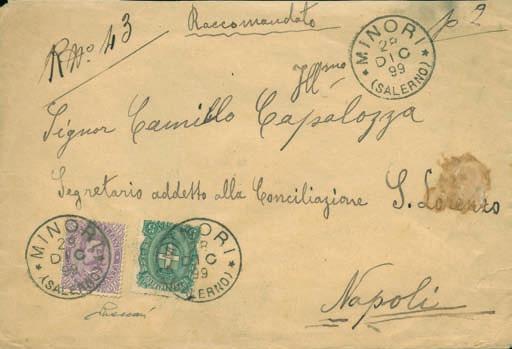 Raccomandato
R No. 43
p 2
MINORI
29
DIC
99
(SALERNO)
Ill.mo
Signor Camillo Capalozza
Segretario addetto alla Conciliazione S. Lorenzo
Napoli
MINORI
29
DIC
99
(SALERNO)
MINORI
DIC
99
(SALERNO)